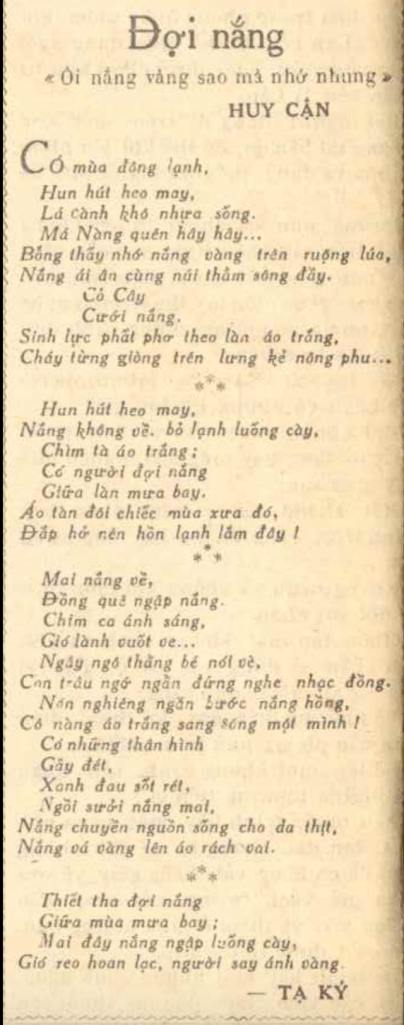 Đợi nắng
« Ôi nắng vàng sao mà nhớ nhung »
HUY CẬN
CÓ mùa đông lạnh,
Hun hút heo may,
Lá cành khô nhựa sống.
Má Nàng quên hây hây...
Bỗng thấy nhớ nắng vàng trên ruộng lúa,
Nắng ái ân cùng núi thẳm sông đầy.
Cỏ Cây
Cười nắng.
Sinh lực phất phơ theo làn áo trắng,
Chảy từng giòng trên lưng kẻ nông phu...
***
Hun hút heo may,
Nắng không về. bỏ lạnh luống cày,
Chìm tà áo trắng;
Có người đợi nắng
Giữa làn mưa bay.
Áo tàn đôi chiếc mùa xưa đó,
Đắp hở nên hồn lạnh lắm đây !
***
Mai nắng về,
Đồng quê ngập nắng.
Chim ca ánh sáng,
Gió lành vuốt ve...
Ngây ngô thằng bé nói vè,
Con trâu ngớ ngẩn đứng nghe nhạc đồng.
Nón nghiêng ngăn bước nắng hồng,
Cô nàng áo trắng sang sông một mình !
Có những thân hình
Gầy đét,
Xanh đau sốt rét,
Ngồi sưởi nắng mai,
Nắng chuyền nguồn sống cho da thịt,
Nắng vá vàng lên áo rách vai.
***
Thiết tha đợi nắng
Giữa mùa mưa bay;
Mai đây nắng ngập luống cày,
Gió reo hoan lạc, người say ánh vàng.
— TẠ KÝ